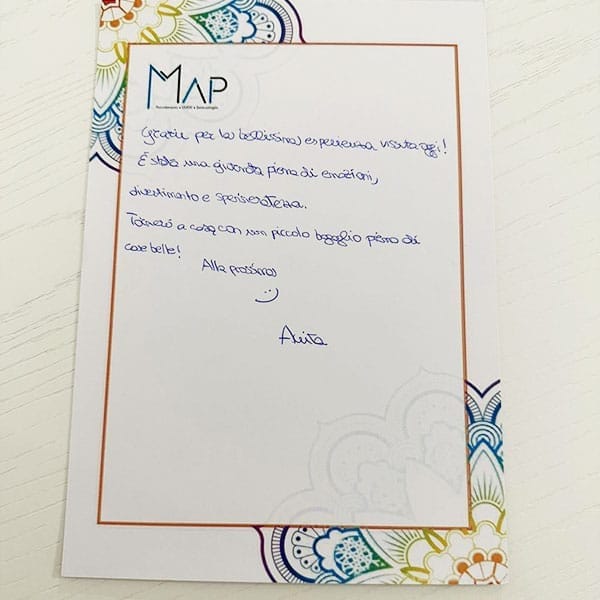 MAP
Grazie per la bellissima esperienza vissuta oggi!
È stata una giornata piena di emozioni,
divertimento e spensieratezza.
Tornerò a casa con un piccolo bagaglio pieno di
cose belle!
Alla prossima
:)
Anita